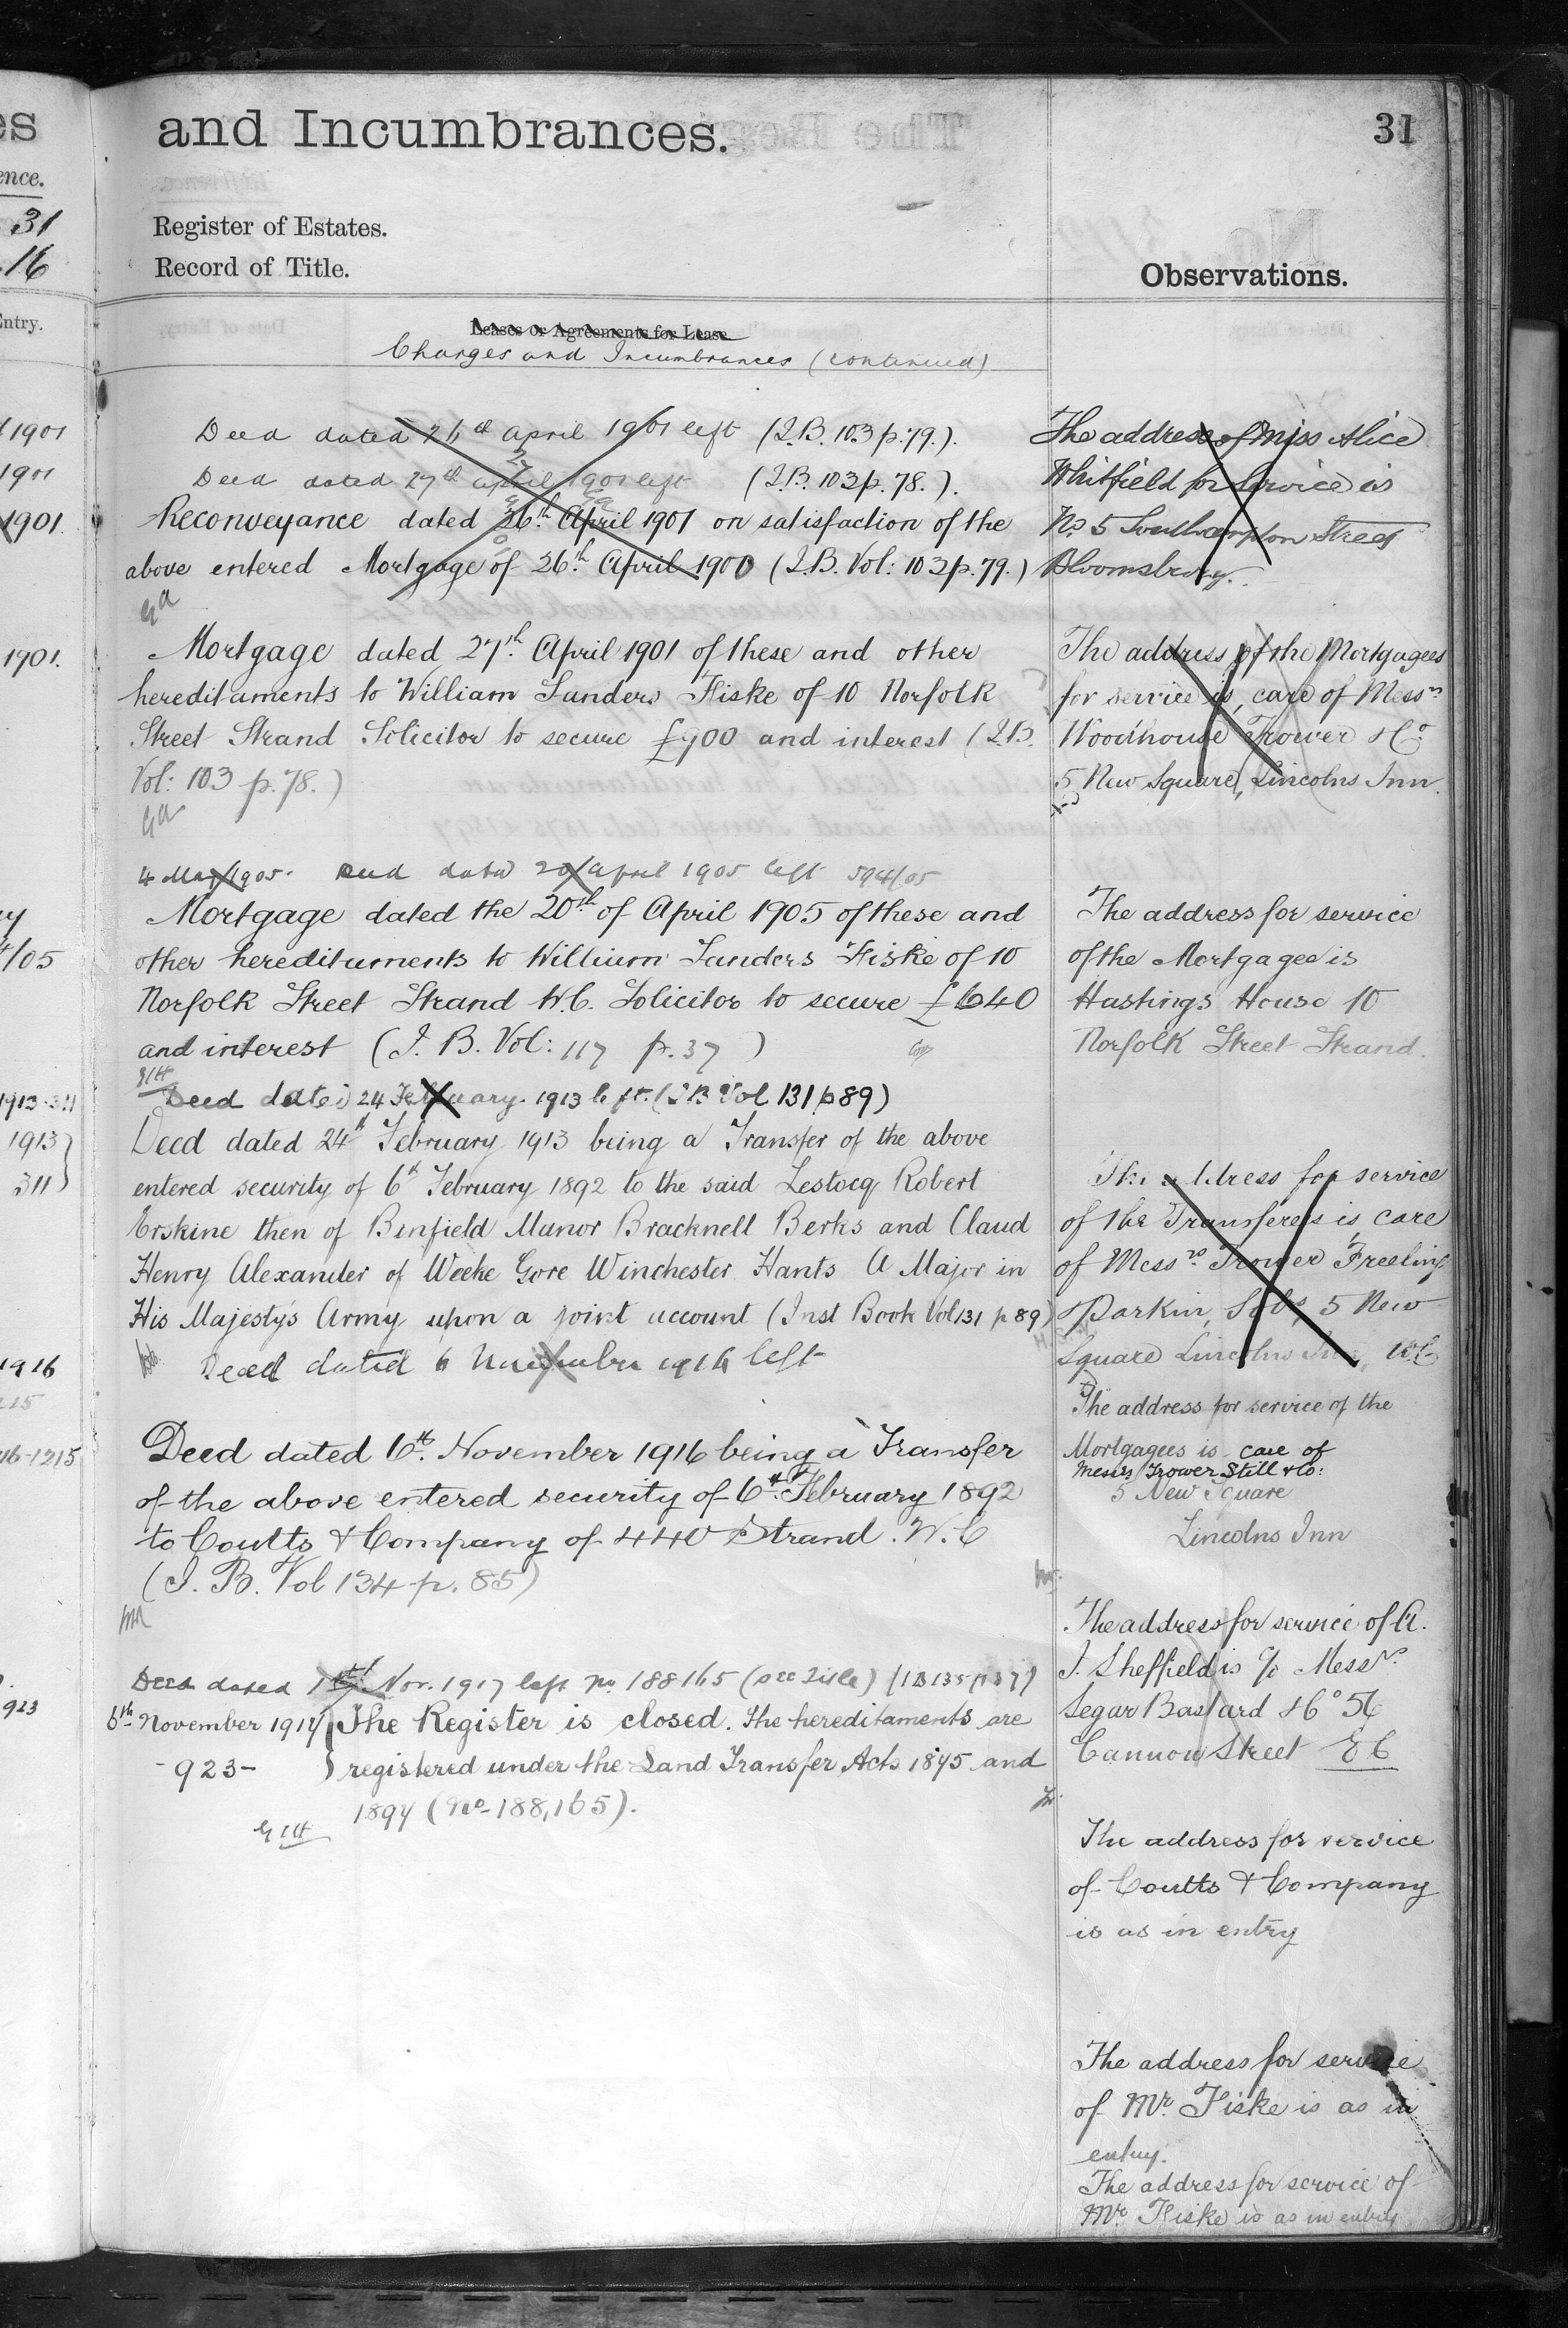 es
and Incumbrances.
31
ence.
31
16
Register of Estates.
Record of Title.
Observations.
Entry.
Leases or Agreements for Lease
Charges and Incumbrances (continued)
1901
Deed dated 26th April 1901 left (I.B. 103 p. 79.).
1901
Deed dated 27th April 1901 left (I.B. 103 p. 78.).
1901
Reconveyance dated 26th April 1901 on satisfaction of the
above entered Mortgage of 26th April 1900 (I.B. Vol: 103 p. 79.)
The address of Miss Alice
Whitfield for service is
No 5 Southampton Street
Bloomsbury.
1901.
Mortgage dated 27th April 1901 of these and other
hereditaments to William Sanders Fiske of 10 Norfolk
Street Strand Solicitor to secure £900 and interest (I.B.
Vol: 103 p. 78.)
The address of the Mortgagees
for service is, care of Messrs
Woodhouse Trower & Co
5 New Square, Lincolns Inn.
4 May 1905. Deed dated 20 April 1905 left 594/05
Mortgage dated the 20th of April 1905 of these and
other hereditaments to William Sanders Fiske of 10
Norfolk Street Strand W.C. Solicitor to secure £640
and interest (I. B. Vol: 117 p. 37)
/05
The address for service
of the Mortgagee is
Hastings House 10
Norfolk Street Strand.
1913-311
Deed dated 24 February 1913 left. (I B Vol 131 p 89)
1913
311
Deed dated 24th February 1913 being a Transfer of the above
entered security of 6th February 1892 to the said Lestocq Robert
Erskine then of Binfield Manor Bracknell Berks and Claud
Henry Alexander of Weeke Gore Winchester Hants A Major in
His Majesty's Army upon a joint account (Inst Book Vol 131 p 89)
The address for service
of the Transferees is care
of Messrs Trower Freeling
& Parkin, Sols, 5 New
Square Lincolns Inn, WC
1916
215
Deed dated 6 November 1916 left
The address for service of the
Mortgagees is care of
Messrs Trower Still & Co:
5 New Square
Lincolns Inn
16-1215
Deed dated 6th November 1916 being a Transfer
of the above entered security of 6th February 1892
to Coutts & Company of 440 Strand. W.C
(I. B. Vol 134 p. 85)
The address for service of A.
J. Sheffield is c/o Messrs
Segar Bastard & Co 56
Cannon Street EC
923
Deed dated Nov. 1917 left No 188165 (see Title) (IB 135 p 37)
6th November 1917 The Register is closed. The hereditaments are
-923- registered under the Land Transfer Acts 1875 and
1897 (No-188,165).
GHH
The address for service
of Coutts & Company
is as in entry
The address for service
of Mr. Fiske is as in
entry.
The address for service of
Mr Fiske is as in entry